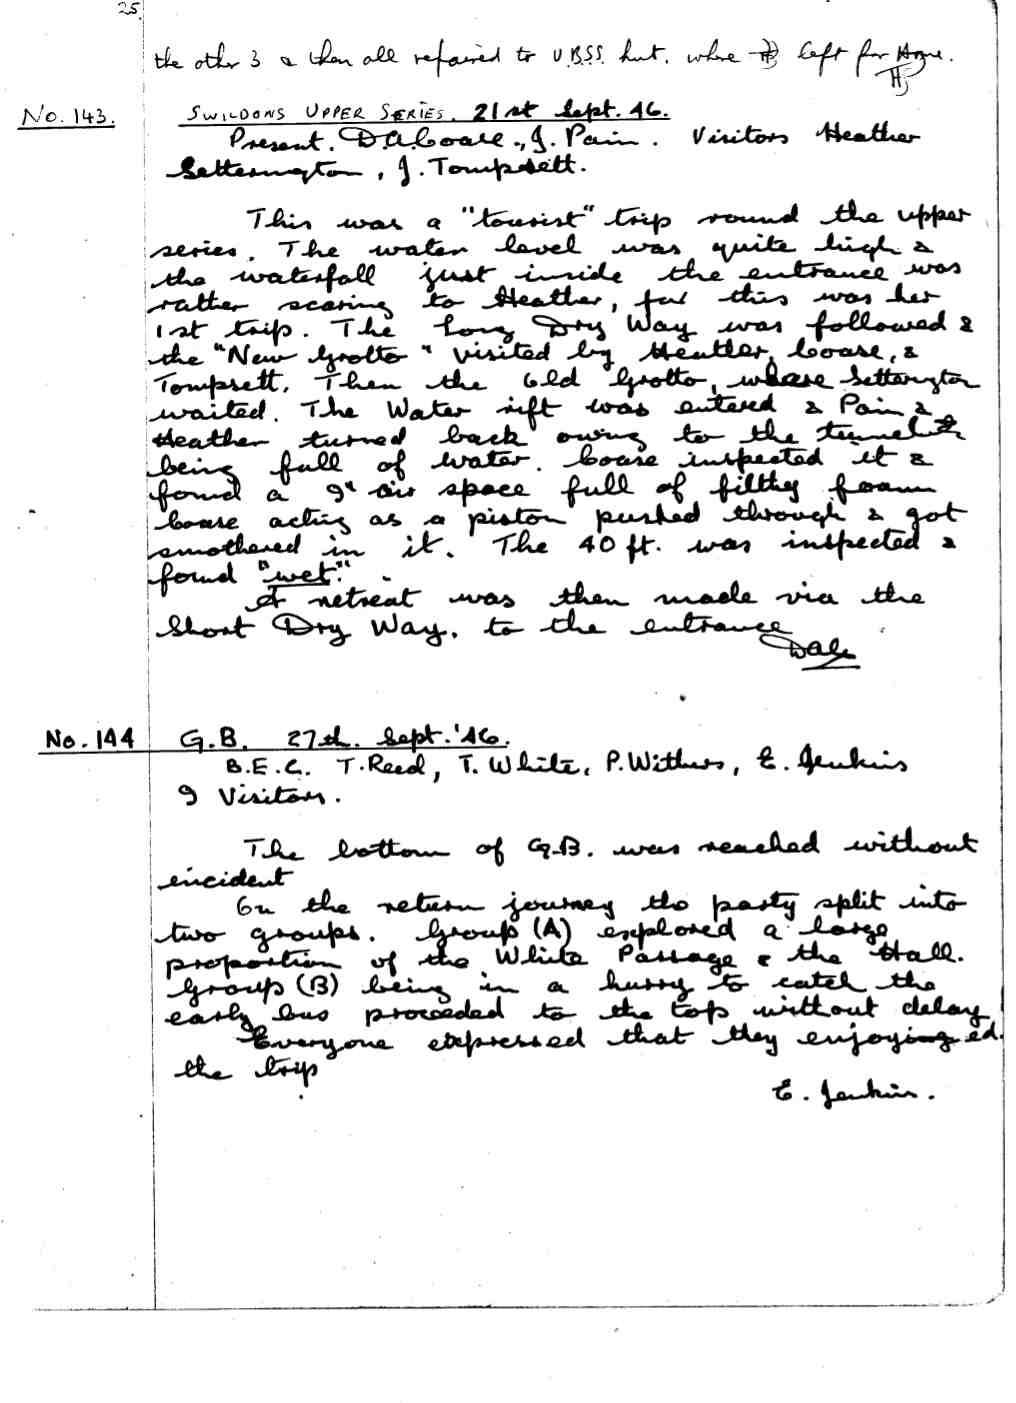 25.
the other 3 & then all repaired to U.B.S.S. hut. where left for Home.
No. 143. SWILDONS UPPER SERIES. 21st Sept. 46.
Present. D.A.Coase., J. Pain. Visitors Heather
Setterington, J. Tompsett.
This was a "tourist" trip round the upper
series. The water level was quite high &
the waterfall just inside the entrance was
rather scaring to Heather, for this was her
1st trip. The Long Dry Way was followed &
the "New Grotto" visited by Heather, Coase, &
Tompsett. Then the Old Grotto, where Setterington
waited. The Water rift was entered & Pain &
Heather turned back owing to the tunnel
being full of water. Coase inspected it &
found a 9" air space full of filthy foam
Coase acting as a piston pushed through & got
smothered in it. The 40 ft. was inspected &
found "wet".
A retreat was then made via the
Short Dry Way. to the entrance
No. 144 G.B. 27th. Sept. '46.
B.E.C. T. Reed, T. White, P. Withers, E. Jenkins
9 Visitors.
The bottom of G.B. was reached without
incident
On the return journey the party split into
two groups. Group (A) explored a large
proportion of the White Passage & the Hall.
Group (B) being in a hurry to catch the
early bus proceeded to the top without delay
Everyone expressed that they enjoying ed.
the trip
E. Jenkins.